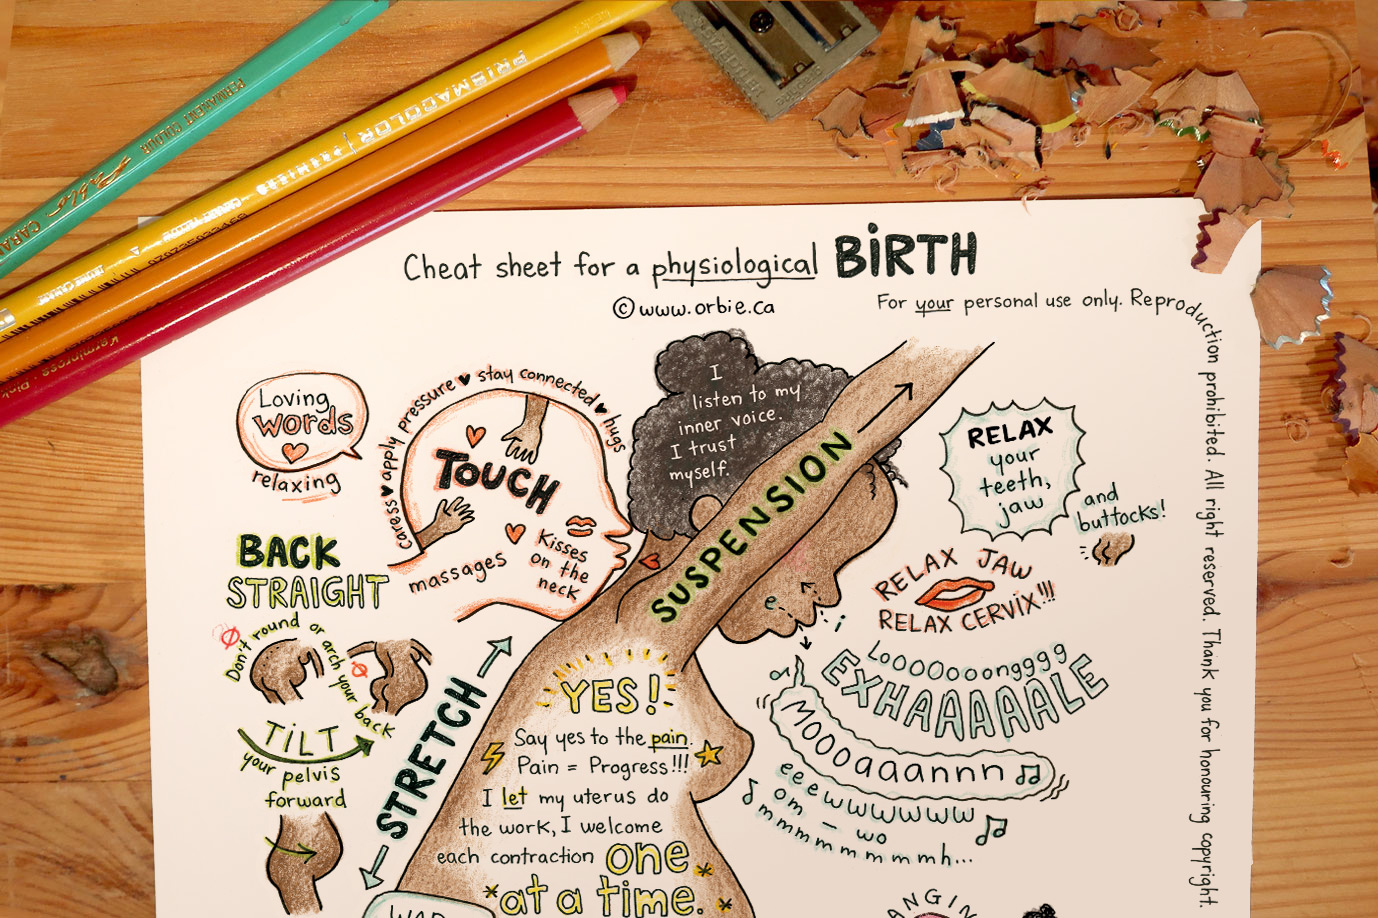 PERMANENT COLOUR
Pablo
CARAN
PRISMACOLOR PREMIER
Cheat sheet for a physiological BiRTH
©www.orbie.ca
For your personal use only. Reproduction prohibited. All right reserved. Thank you for honouring copyright.
Loving
words
relaxing
caress apply pressure stay connected hugs
TOUCH
Kisses
on the
neck
massages
I
listen to my
inner voice.
I trust
myself.
SUSPENSION
RELAX
your
teeth,
jaw
and
buttocks!
RELAX JAW
RELAX CERVIX!!!
BACK
STRAIGHT
Don't round or arch your back
TiLT
your pelvis
forward
STRETCH
YES!
Say yes to the pain.
Pain = Progress!!!
I let my uterus do
the work, I welcome
each contraction one
at a time.
e
i
LooOOooongggg
EXHAAAAALE
MOOOaaannnn
eeewwwwww
om – wo
mmmmmmmmmh...